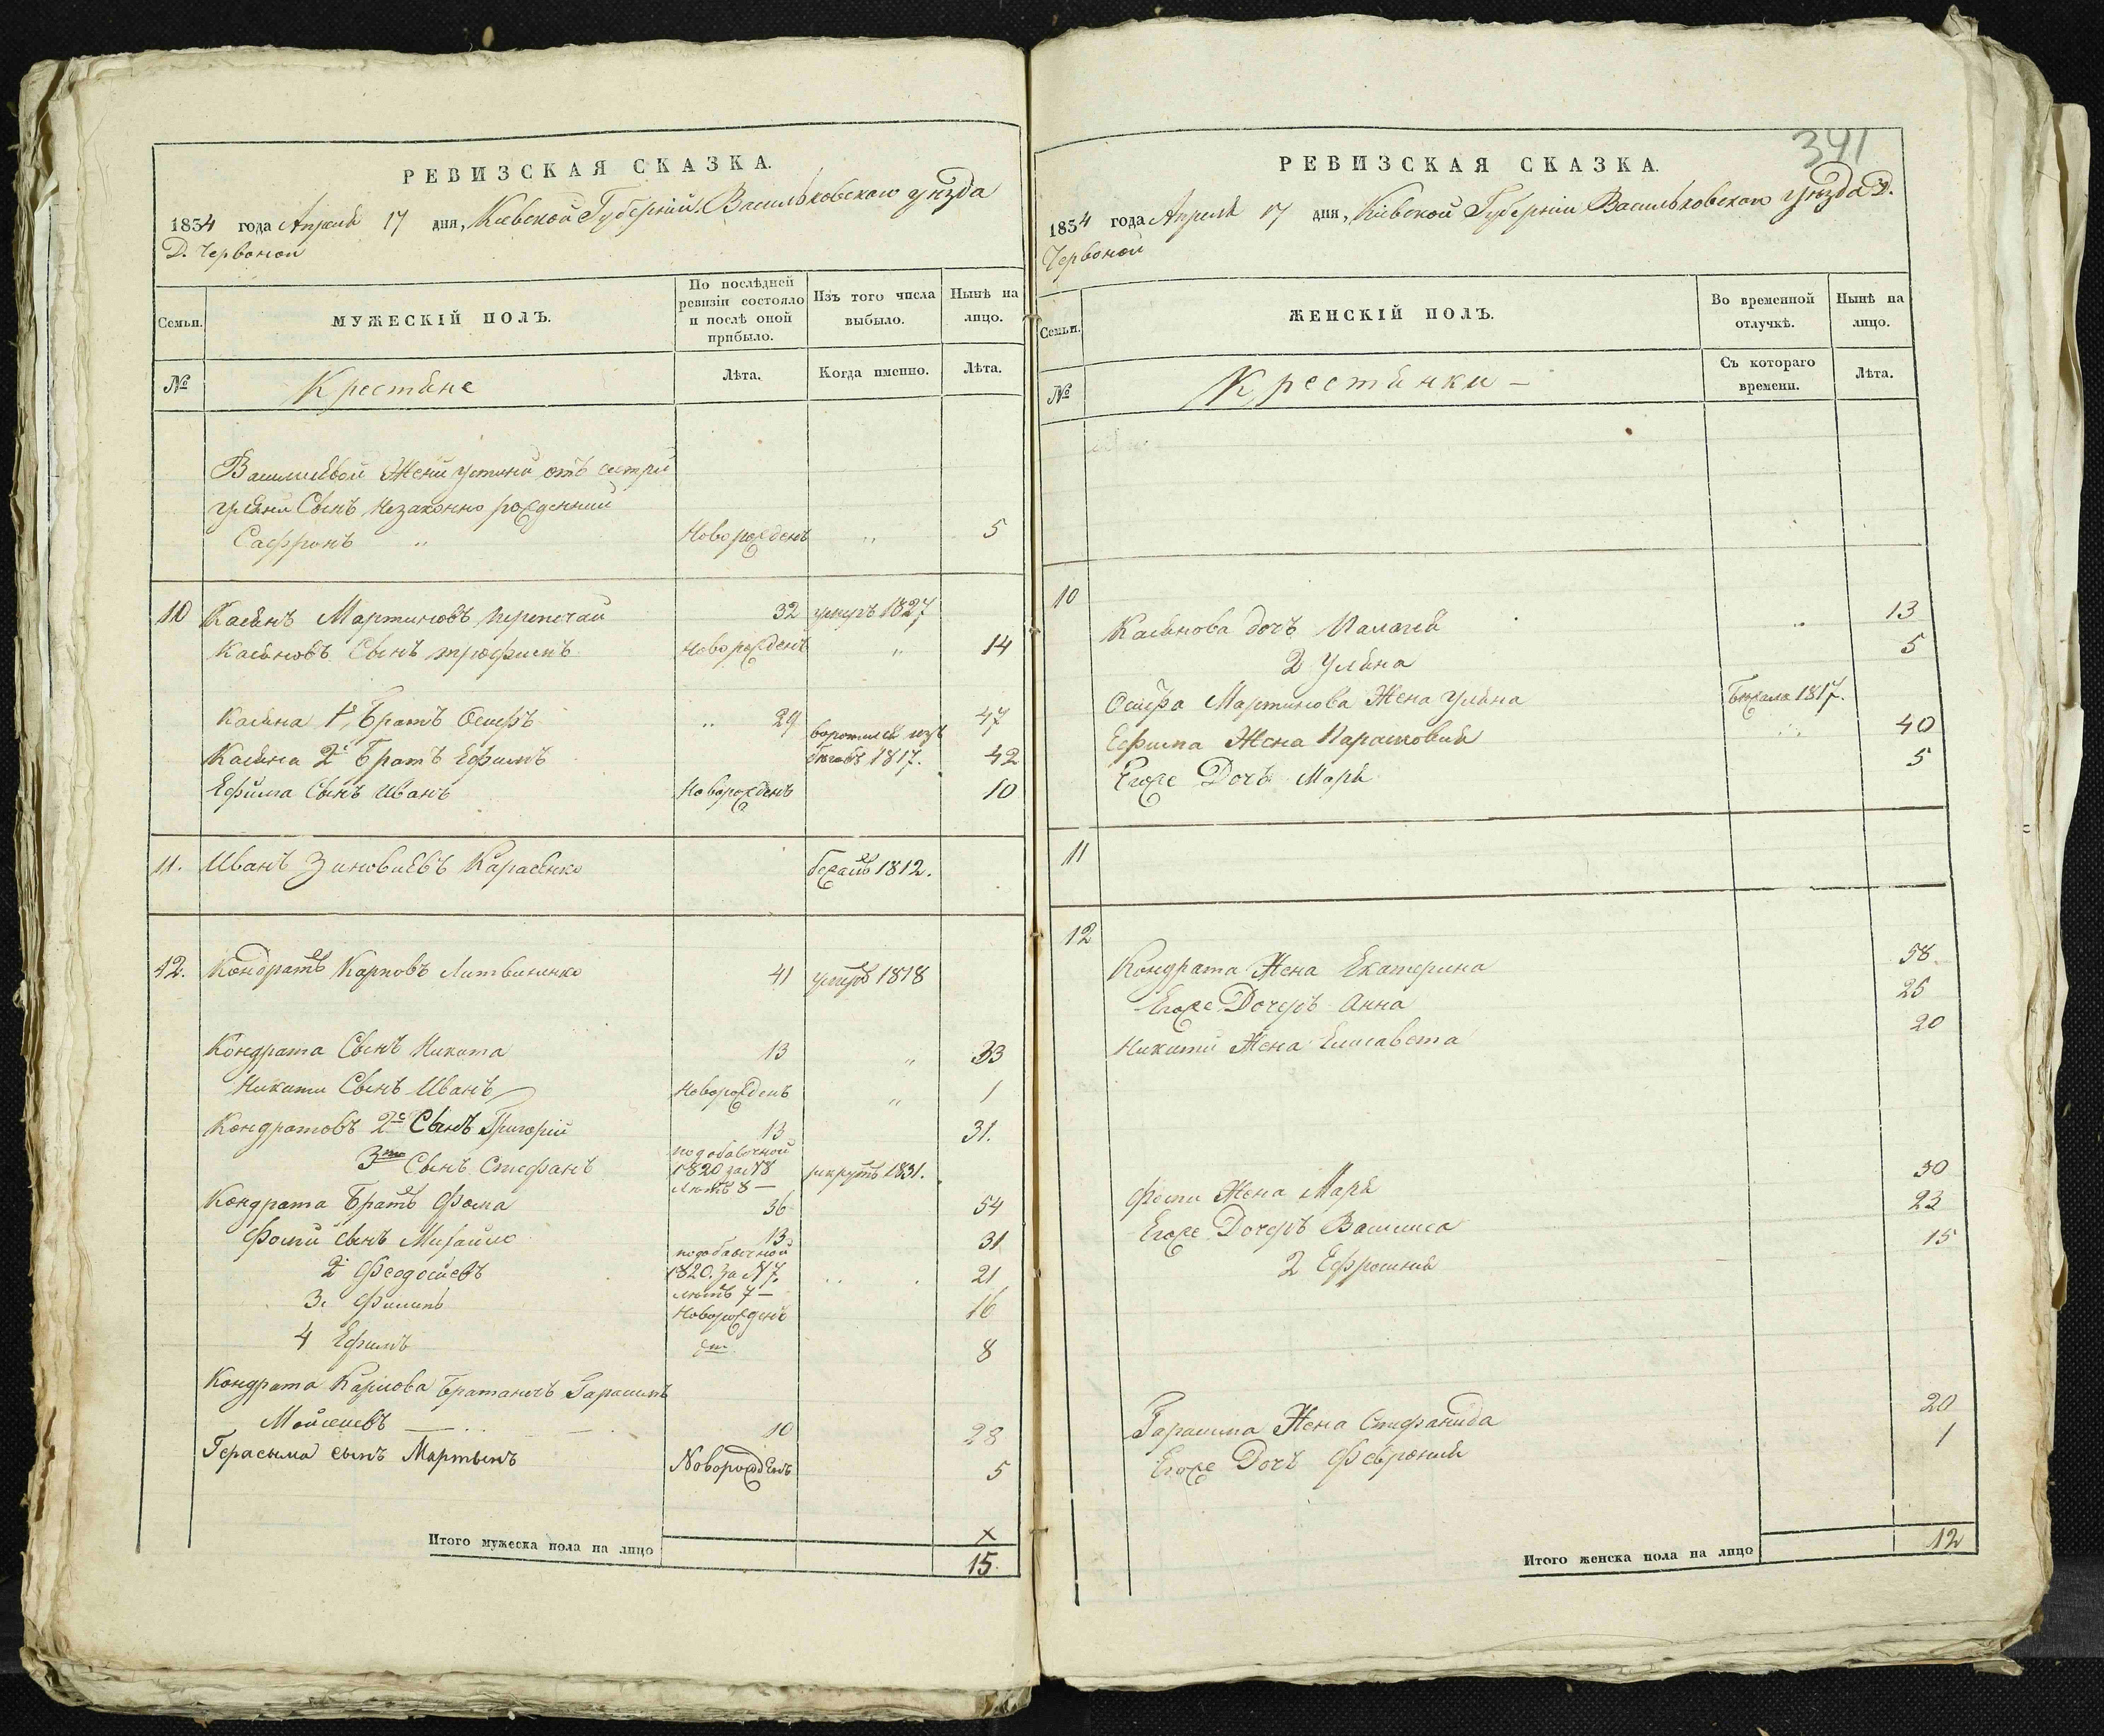 РЕВИЗСКАЯ СКАЗКА.
1834 года Апреля 17 дня, Киевской Губернии, Васильковскаго уезда
Д. Червоной
Семьи.
МУЖЕСКІЙ ПОЛЪ.
По послѣдней ревизіи состояло и послѣ оной прибыло.
Изъ того числа выбыло.
Нынѣ на лицо.
№
Крестяне
Лѣта.
Когда именно.
Лѣта.
Василиевой Жени Устини отъ сестри
Уляни Сынъ незаконно рожденний
Сафронъ " Новорожденъ " 5
10 Касянъ Мартиновъ Перепечай 32 умеръ 1827
Касяновъ Сынъ Трофимъ Новорожденъ " 14
Касяна 1й Братъ Осифъ " 29 47
Касяна 2й Братъ Ефимъ воротился изъ бегов 1817. 42
Ефима Сынъ Иванъ Новорожденъ 10
11. Иванъ Зиновиевъ Карасенко бежалъ 1812.
12. Кондратъ Карповъ Литвиненко 41 умеръ 1818
Кондрата Сынъ Никита 13 " 33
Никити Сынъ Иванъ Новорожденъ " 1
Кондратовъ 2й Сынъ Григорій 13 31.
3й Сынъ Стефанъ по добавочной 1820 за №8 летъ 8 — рекрутъ 1831.
Кондрата Братъ Фома 36 54
Фоми сынъ Михайло 13 31
2й Феодосиевъ по добавочной 1820. за №7. летъ 7 — 21
3. Филипъ Новорожденъ 16
4 Ефимъ 8
Кондрата Карпова Братаничъ Гарасимъ
Мойсеевъ — 10 28
Герасыма сынъ Мартынъ Новорожденъ 5
Итого мужеска пола на лицо
×
15.
341
РЕВИЗСКАЯ СКАЗКА.
1834 года Апреля 17 дня, Кіевской Губерніи Васильковскаго уезда Д.
Червоной
Семьи.
ЖЕНСКІЙ ПОЛЪ.
Во временной отлучкѣ.
Нынѣ на лицо.
№
Крестянки —
Съ котораго времени.
Лѣта.
10
Касянова дочъ Палагея " 13
2 Уляна 5
Осифа Мартинова Жена Уляна Бежала 1817.
Ефима Жена Парасковия 40
Егоже Дочъ Маря 5
11
12
Кондрата Жена Екатерина 58
Егоже Дочеръ Анна 25
Никити Жена Елисавета 20
Фоми Жена Маря 30
Егоже Дочеръ Василиса 23
2 Ефросиния 15
Гарасима Жена Стефанида 20
Егоже Дочъ Феврония 1
Итого женска пола на лицо 12